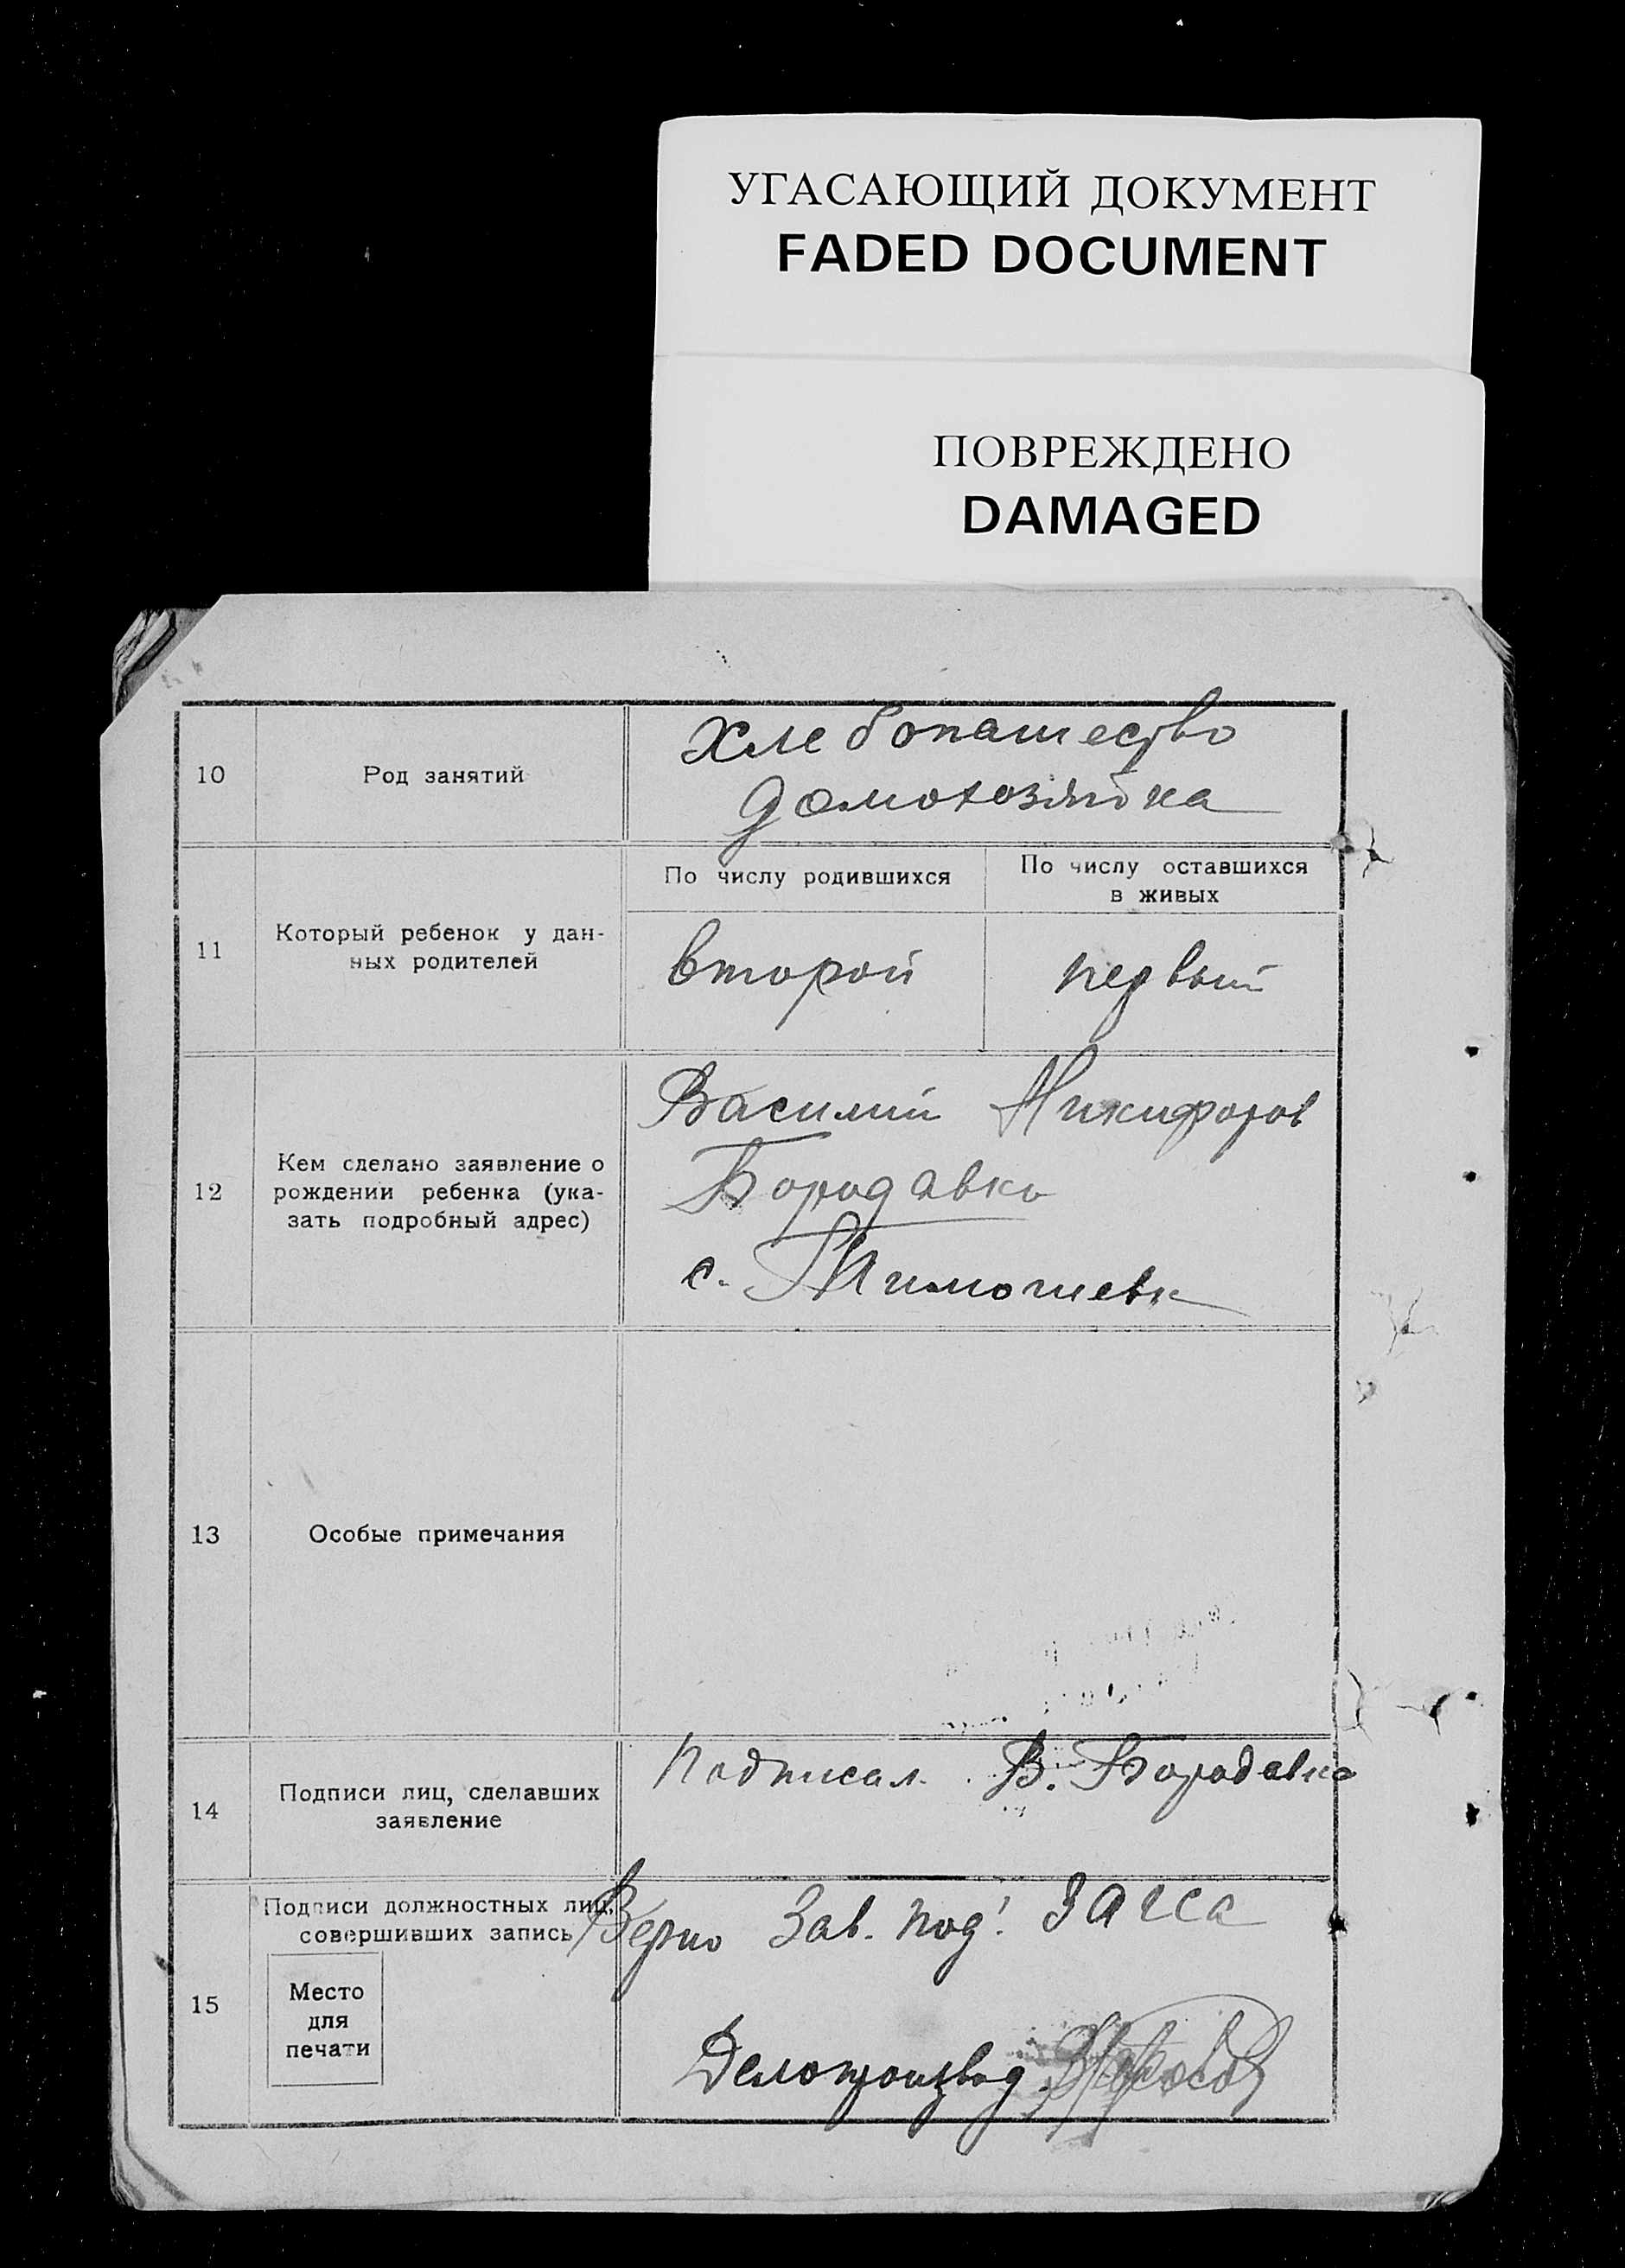 УГАСАЮЩИЙ ДОКУМЕНТ
FADED DOCUMENT
ПОВРЕЖДЕНО
DAMAGED
10
Род занятий
Хлебопашество
домохозяйка
11
Который ребенок у дан-
ных родителей
По числу родившихся
второй
По числу оставшихся
в живых
первый
12
Кем сделано заявление о
рождении ребенка (ука-
зать подробный адрес)
Василий Никифоров
Бородавко
с. Тимошевк
13
Особые примечания
14
Подписи лиц, сделавших
заявление
Подписал В. Бородавко
15
Подписи должностных лиц,
совершивших запись
Место
для
печати
Верно Зав. под. ЗАГСа
Делопроизвод.